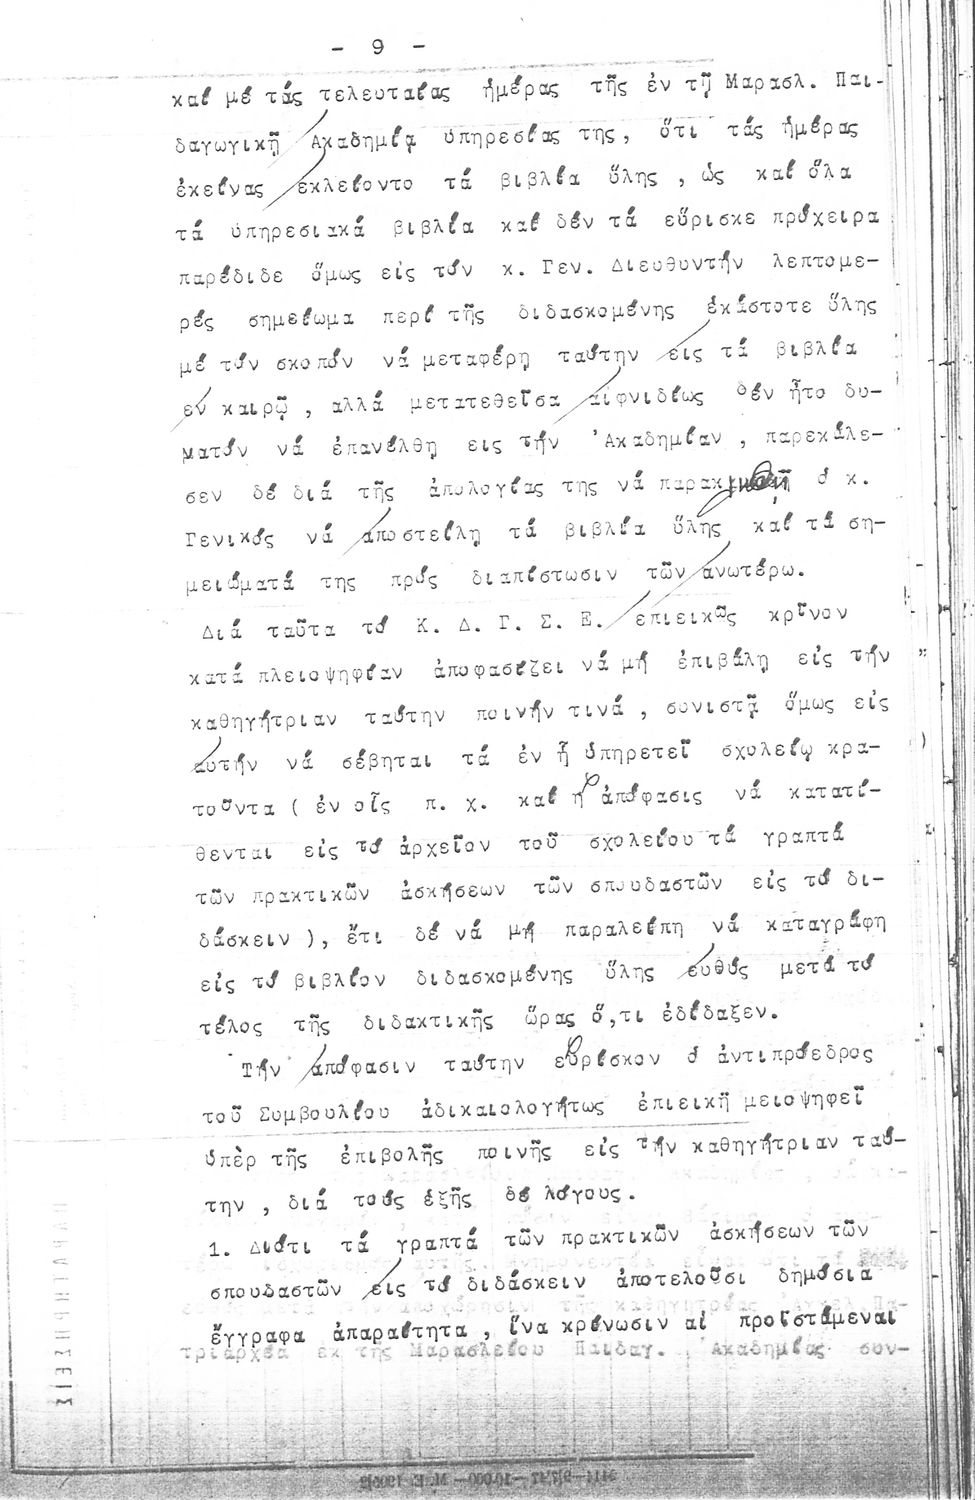 - 9 -
καί μέ τάς τελευταίας ἡμέρας τῆς ἐν τῇ Μαρασλ. Παι-
δαγωγικῇ Ἀκαδημίᾳ ὑπηρεσίας της, ὅτι τάς ἡμέρας
ἐκείνας ἐκλείοντο τά βιβλία ὕλης , ὡς καί ὅλα
τά ὑπηρεσιακά βιβλία καί δέν τά εὕρισκε πρόχειρα
παρέδιδε ὅμως εἰς τόν κ. Γεν. Διευθυντήν λεπτομε-
ρές σημείωμα περί τῆς διδασκομένης ἑκάστοτε ὕλης
μέ τόν σκοπόν νά μεταφέρῃ ταύτην εἰς τά βιβλία
ἐν καιρῷ , ἀλλά μετατεθεῖσα αἰφνιδίως δέν ἦτο δυ-
ματόν νά ἐπανέλθῃ εις τήν Ἀκαδημίαν , παρεκάλε-
σεν δέ διά τῆς ἀπολογίας της νά ὁ κ.
Γενικός νά ἀποστείλῃ τά βιβλία ὕλης καί τά ση-
μειώματά της πρός διαπίστωσιν τῶν ἀνωτέρω.
Διά ταῦτα τό Κ. Δ. Γ. Σ. Ε. ἐπιεικῶς κρῖνον
κατά πλειοψηφίαν ἀποφασίζει νά μή ἐπιβάλῃ εἰς τήν
καθηγήτριαν ταύτην ποινήν τινά , συνιστᾷ ὅμως εἰς
αὐτήν νά σέβηται τά ἐν ᾗ ὑπηρετεῖ σχολείῳ κρα-
τοῦντα ( ἐν οἷς π. χ. καί ἡ ἀπόφασις νά κατατί-
θενται εἰς τό ἀρχεῖον τοῦ σχολείου τά γραπτά
τῶν πρακτικῶν ἀσκήσεων τῶν σπουδαστῶν εἰς τό δι-
δάσκειν ), ἔτι δέ νά μή παραλείπῃ νά καταγράφῃ
εἰς τό βιβλίον διδασκομένης ὕλης εὐθύς μετά τό
τέλος τῆς διδακτικῆς ὥρας ὅ,τι ἐδίδαξεν.
Τήν ἀπόφασιν ταύτην εὑρίσκον ὁ ἀντιπρόεδρος
τοῦ Συμβουλίου ἀδικαιολογήτως ἐπιεικῆ μειοψηφεῖ
ὑπὲρ τῆς ἐπιβολῆς ποινῆς εἰς τήν καθηγήτριαν ταύ-
την , διά τούς ἑξῆς δέ λόγους.
1. Διότι τά γραπτά τῶν πρακτικῶν ἀσκήσεων τῶν
σπουδαστῶν εἰς τό διδάσκειν ἀποτελοῦσι δημόσια
ἔγγραφα ἀπαραίτητα , ἵνα κρίνωσιν αἱ προϊστάμεναι
τριάρχεα ἐκ τῆς Μαρασλείου Παιδαγ. Ἀκαδημίας συν-